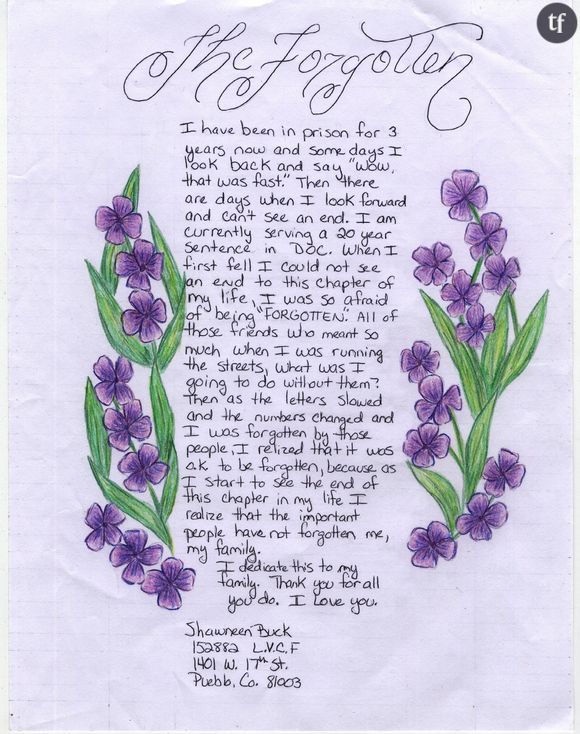 tf
The Forgotten
I have been in prison for 3
years now and some days I
look back and say "Wow,
that was fast." Then there
are days when I look forward
and can't see an end. I am
currently serving a 20 year
sentence in DOC. When I
first fell I could not see
an end to this chapter of
my life, I was so afraid
of being "FORGOTTEN". All of
those friends who meant so
much when I was running
the streets, what was I
going to do without them?
Then as the letters slowed
and the numbers changed and
I was forgotten by those
people, I relized that it was
o.k to be forgotten, because as
I start to see the end of
this chapter in my life I
realize that the important
people have not forgotten me,
my family.
I dedicate this to my
family. Thank you for all
you do. I Love you.
Shawneen Buck
152882 L.V.C.F
1401 W. 17th St.
Puebb, Co. 81003